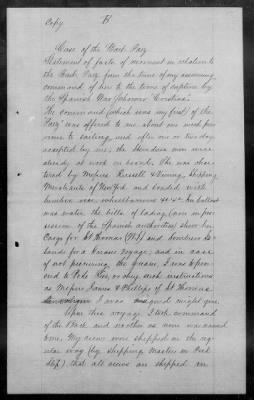 Copy B
Case of the Bark Paez
Statement of facts of movement in relation to
the Bark Paez from the time of my assuming
command of her to the time of capture by
the Spanish War Schooner Cristina.
The command (which was my first) of the
Paez was offered to me about one week pre-
vious to sailing and after one or two days
accepted by me; the Stevedores men were
already at work on board. She was char-
tered by Messrs Russell & Vining, Shipping
Merchants of New York and loaded with
lumber, wheelbarrows &c &c. Her ballast
was water, the bills of lading (now in pos-
session of the Spanish authorities) show her
Cargo for St Thomas (W.I.) and Sombrero Is-
lands for a Guano voyage; and in case
of not procuring the guano, I was to pro-
ceed to such instructions
as Messrs & Phillips of St Thomas
I was might give.
Upon this voyage I took command
of the Bark and no other as soon was named
to me. My crew were shipped in the reg-
ular way (by Shipping Masters in
that all crews are shipped in